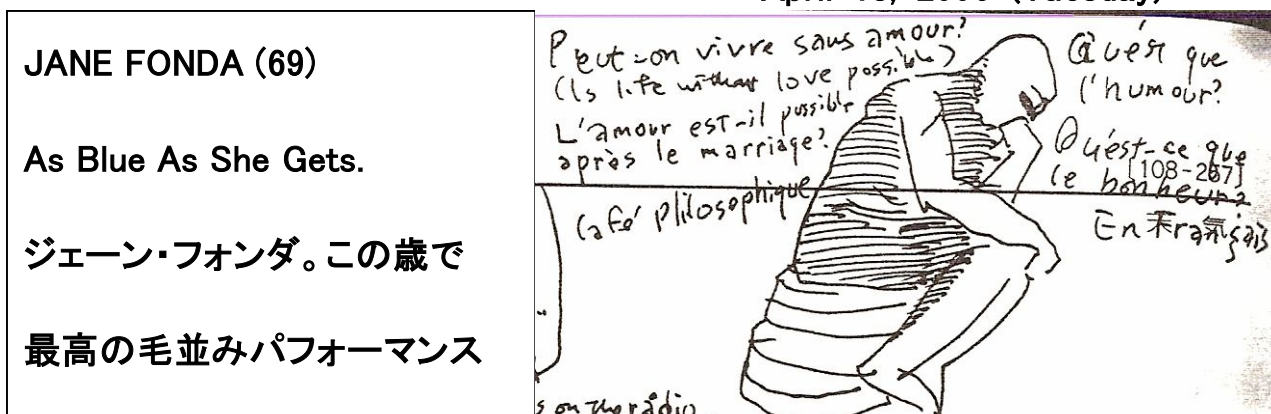 JANE FONDA (69)
As Blue As She Gets.
ジェーン・フォンダ。この歳で
最高の毛並みパフォーマンス
Peut-on vivre sans amour?
(Is life without love possible)
L'amour est-il possible
après le marriage?
Café philosophique
Qu'est que
l'humour?
Qu'est-ce que
[108-267]
le bonheur?
En
on the radio